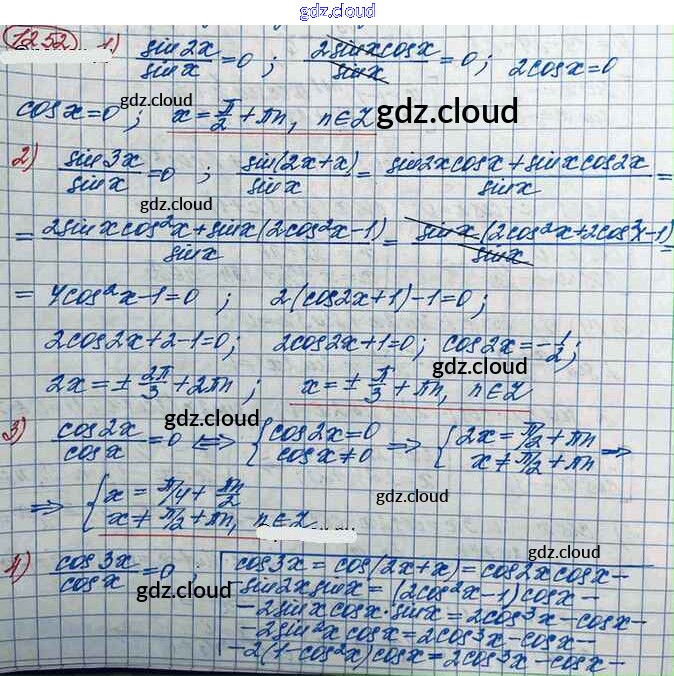 gdz.cloud
12.52 1) sin2x/sinx = 0 ; 2sinxcosx/sinx = 0 ; 2cosx=0
cosx=0 ; x = π/2 + πn, n∈Z
gdz.cloud gdz.cloud
2) sin3x/sinx = 0 ; sin(2x+x)/sinx = sin2xcosx+sinxcos2x/sinx =
gdz.cloud
= 2sinxcos²x+sinx(2cos²x-1)/sinx = sinx(2cos²x+2cos²x-1)/sinx =
= 4cos²x-1=0 ; 2(cos2x+1)-1=0 ;
2cos2x+2-1=0 ; 2cos2x+1=0 ; cos2x = -1/2 ;
gdz.cloud
2x = ± 2π/3 + 2πn ; x = ± π/3 + πn, n∈Z
gdz.cloud
3) cos2x/cosx = 0 ⇔ { cos2x=0 cosx≠0 ⇒ { 2x = π/2 + πn x ≠ π/2 + πn ⇒
gdz.cloud
⇒ { x = π/4 + πn/2 x ≠ π/2 + πn, n∈Z
gdz.cloud
4) cos3x/cosx = 0 ; cos3x = cos(2x+x) = cos2xcosx-
gdz.cloud
-sin2xsinx = (2cos²x-1)cosx-
gdz.cloud
-2sinxcosx·sinx = 2cos³x-cosx-
-2sin²xcosx = 2cos³x-cosx-
-2(1-cos²x)cosx = 2cos³x-cosx-